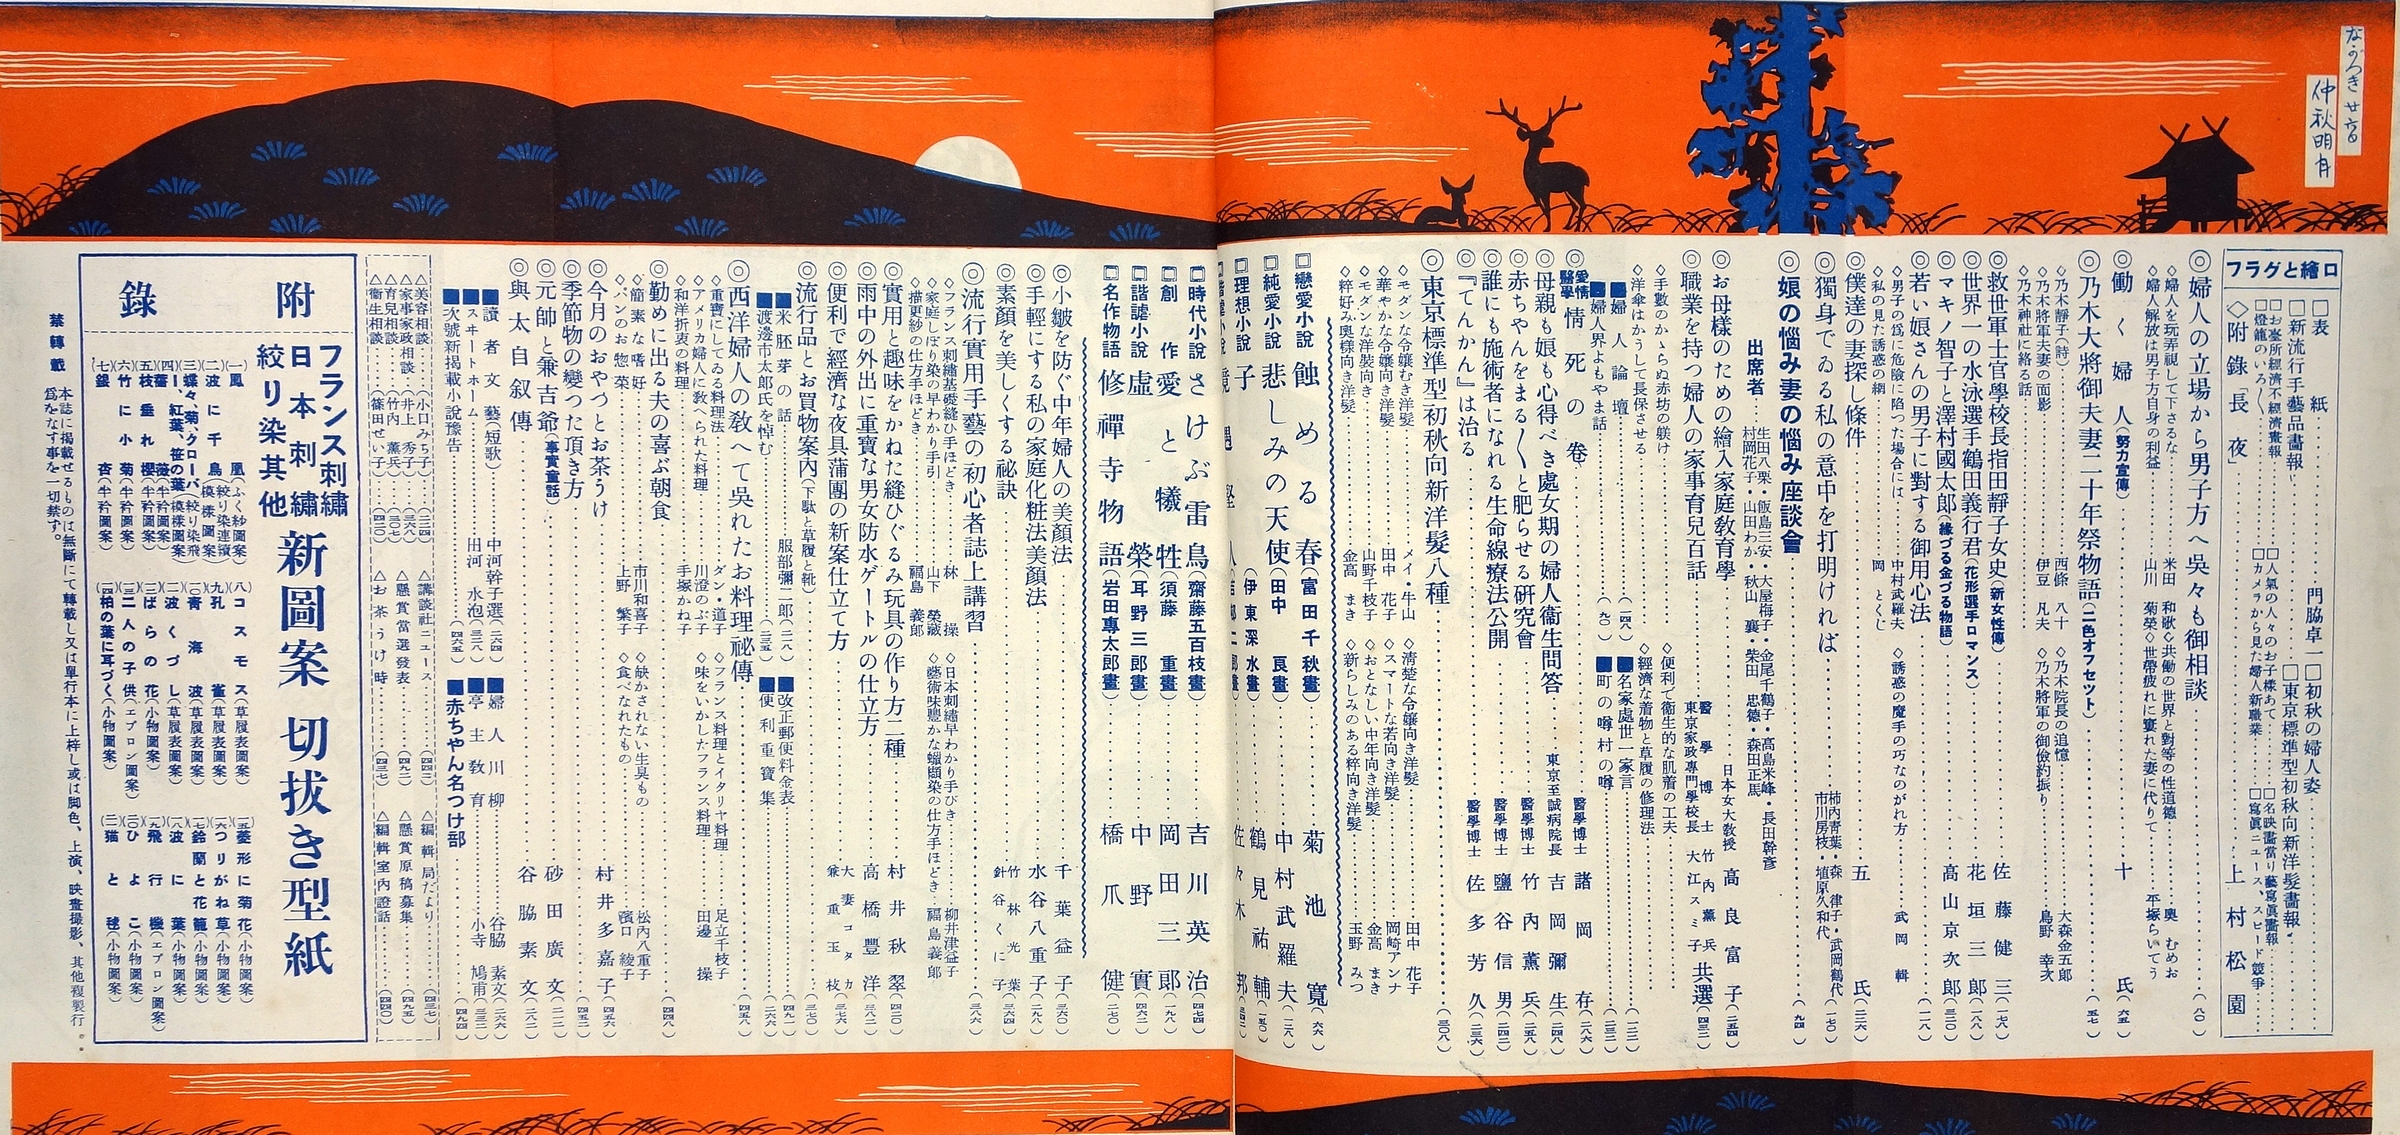 ながつき廿六日
仲秋明月
口繪とグラフ
□表紙 門脇卓一
□初秋の婦人姿
□新流行手藝品畫報
□東京標準型初秋向新洋髮畫報
□お臺所經濟不經濟畫報
□人氣の人々のお子樣あて
□名映畫當り藝寫眞畫報
□燈籠のいろ〳〵
□カメラから見た婦人新職業
□寫眞ニュース、スピード競爭
◇附錄「長夜」 上村松園
◎婦人の立場から男子方へ吳々も御相談 (八〇)
◇婦人を玩弄視して下さるな 米田和歌
◇共働の世界と對等の性道德 奧むめお
◇婦人解放は男子方自身の利益 山川菊榮
◇世帶疲れに窶れた妻に代りて 平塚らいてう
◎働く婦人(努力宣傳) 十氏 (六五)
◎乃木大將御夫妻二十年祭物語(二色オフセット) (五七)
◇乃木靜子(詩) 西條八十
◇乃木院長の追憶 大森金五郎
◇乃木將軍夫妻の面影 伊豆凡夫
◇乃木將軍の御儉約振り 島野幸次
◇乃木神社に絡る話
◎救世軍士官學校長指田靜子女史(新女性傳) 佐藤健三 (一七六)
◎世界一の水泳選手鶴田義行君(花形選手ロマンス) 花垣三郎 (一八八)
◎マキノ智子と澤村國太郎(緣づる金づる物語) 高山京次郎 (三二〇)
◎若い娘さんの男子に對する御用心法 (一一八)
◇男子の爲に危險に陷つた場合には 中村武羅夫
◇誘惑の魔手の巧なのがれ方 武岡輯
◇私の見た誘惑の網 岡とくじ
◎僕達の妻探し條件 五氏 (二三六)
◎獨身でゐる私の意中を打明ければ 柿內靑葉・森律子・武岡鶴代 市川房枝・埴原久和代 (一七〇)
◎娘の惱み妻の惱み座談會 (九四)
出席者 生田八栗・飯島三安・大屋梅子・金尾千鶴子・高島米峰・長田幹彥
村岡花子・山田わか・秋山襄・柴田忠德・森田正馬
◎お母樣のための繪入家庭敎育學 日本女大敎授 高良富子 (二五四)
◎職業を持つ婦人の家事育兒百話 醫學博士 竹內薰兵 東京家政專門學校長 大江スミ子 共選 (四三一)
◇手數のかゝらぬ赤坊の躾け
◇便利で衞生的な肌着の工夫
◇洋傘はかうして長保させる
◇經濟な着物と草履の修理法
■婦人論壇 (一四八)
■名家處世一家言 (一二一)
■婦人界よもやま話 (九〇)
■町の噂村の噂 (一三一)
◎愛情醫學 情死の卷 醫學博士 諸岡存 (二六六)
◎母親も娘も心得べき處女期の婦人衞生問答 東京至誠病院長 吉岡彌生 (二四八)
◎赤ちやんをまる〳〵と肥らせる研究會 醫學博士 竹內薰兵 (二五八)
◎誰にも施術者になれる生命線療法公開 醫學博士 鹽谷信男 (二四二)
◎『てんかん』は治る 醫學博士 佐多芳久 (二三六)
◎東京標準型初秋向新洋髮八種 (三〇八)
◇モダンな令孃むき洋髮 メイ・牛山
◇淸楚な令孃向き洋髮 田中花子
◇華やかな令孃向き洋髮 田中花子
◇スマートな若向き洋髮 岡崎アンナ
◇モダンな洋裝向き 山野千枝子
◇おとなしい中年向き洋髮 金高まき
◇粹好み奧樣向き洋髮 金高まき
◇新らしみのある粹向き洋髮 玉野みつ
□戀愛小說 蝕める春(富田千秋畫) 菊池寬 (六六)
□純愛小說 悲しみの天使(田中良畫) 中村武羅夫 (二八)
□理想小說 子(伊東深水畫) 鶴見祐輔 (一五〇)
□時代小說 さけぶ雷鳥(齋藤五百枝畫) 吉川英治 (四七四)
□創作 愛と犧牲(須藤重畫) 岡田三郎 (一九八)
□諧謔小說 虛榮(耳野三郎畫) 中野實 (四六二)
□名作物語 修禪寺物語(岩田專太郎畫) 橋爪健 (二七〇)
◎小皺を防ぐ中年婦人の美顏法 千葉益子 (三六〇)
◎手輕にする私の家庭化粧法美顏法 水谷八重子 (二九八)
◎素顏を美しくする祕訣 竹林光葉 針谷くに子 (三六四)
◎流行實用手藝の初心者誌上講習 (三八六)
◇フランス刺繡基礎縫ひ手ほどき 林操
◇日本刺繡早わかり手びき 柳井津益子
◇家庭しぼり染の早わかり手引 山下榮藏
◇藝術味豐かな蠟纈染の仕方手ほどき 福島義郎
◇描更紗の仕方手ほどき 福島義郎
◎實用と趣味をかねた縫ひぐるみ玩具の作り方二種 村井秋翠 (四二〇)
◎雨中の外出に重寶な男女防水ゲートルの仕立方 高橋豐洋 (三八二)
◎便利で經濟な夜具蒲團の新案仕立て方 大妻コタカ 兼重玉枝 (三七六)
◎流行品とお買物案內(下駄と草履と靴) (三七〇)
■米胚芽の話 服部彌二郎 (二二八)
■改正郵便料金表 (四九一)
■渡邊市太郎氏を悼む (二三五)
■便利重寶集 (二六六)
◎西洋婦人の敎へて吳れたお料理祕傳 (四五八)
◇重寶にしてゐる料理法 ダン・道子
◇フランス料理とイタリヤ料理 足立千枝子
◇アメリカ婦人に敎へられた料理 川澄のぶ子
◇味をいかしたフランス料理 田邊操
◇和洋折衷の料理 手塚かね子
◎勤めに出る夫の喜ぶ朝食 (四四八)
◇簡素な嗜好 市川和喜子
◇缺かされない生臭もの 松內八重子
◇パンのお惣菜 上野繁子
◇食べなれたもの 濱口綾子
◎今月のおやつとお茶うけ 村井多嘉子 (四五六)
◎季節物の變つた頂き方 (四五二)
◎元帥と兼吉爺(事實童話) 砂田廣文 (二二二)
◎與太自叙傳 谷脇素文 (二八二)
■讀者文藝(短歌) 中河幹子選 (二六四)
■婦人川柳 谷脇素文 (二六六)
■スヰートホーム 田河水泡 (三三八)
■亭主敎育 小寺鳩甫 (三三二)
■次號新揭載小說豫告 (四六五)
■赤ちやん名つけ部 (四九四)
△美容相談 (小口みち子) (三二四)
△講談社ニュース (四四二)
△編輯局だより (四三七)
△家事家政相談 (井上秀子) (三六八)
△懸賞當選發表 (四九二)
△懸賞原稿募集 (四九五)
△育兒相談 (竹內薰兵) (三〇七)
△お茶うけ時 (四三七)
△編輯室內證話 (四四〇)
△衞生相談 (篠田せい子) (四二〇)
附錄
フランス刺繡
日本刺繡
絞り染其他
新圖案切拔き型紙
(一)鳳凰(ふく紗圖案)
(二)波に千鳥(絞り染連續模樣圖案)
(三)蝶々、菊、クローバー、紅葉、笹の葉(絞り染飛模樣圖案)
(四)薔薇(半衿圖案)
(五)枝垂れ櫻(半衿圖案)
(六)竹に小菊(半衿圖案)
(七)銀杏(半衿圖案)
(八)コスモス(草履表圖案)
(九)孔雀(草履表圖案)
(一〇)靑海波(草履表圖案)
(一一)波くづし(草履表圖案)
(一二)ばらの花(小物圖案)
(一三)二人の子供(エプロン圖案)
(一四)柏の葉に耳づく(小物圖案)
(一五)菱形に菊花(小物圖案)
(一六)つりがね草(小物圖案)
(一七)鈴蘭と花籠(小物圖案)
(一八)波に葉(小物圖案)
(一九)飛行機(エプロン圖案)
(二〇)ひよこ(小物圖案)
(二一)猫と毬(小物圖案)
禁轉載 本誌に揭載せるものは無斷にて轉載し又は單行本に上梓し或は脚色、上演、映畫撮影、其他複製行爲をなす事を一切禁ず。